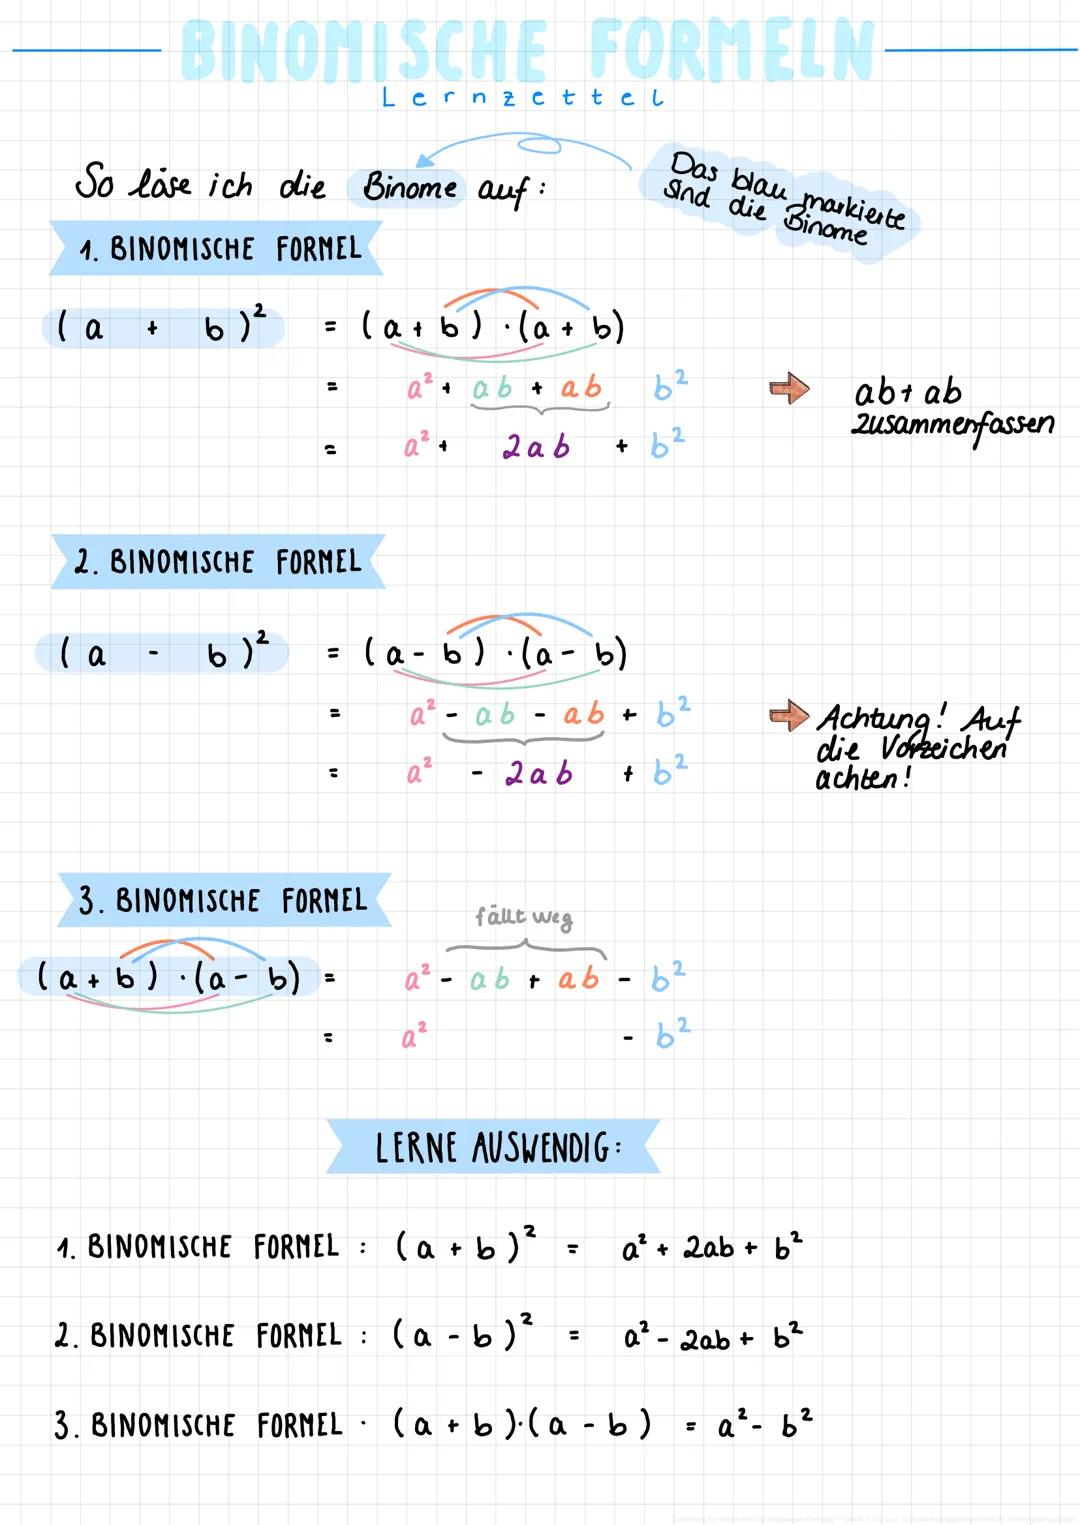 BINOMISCHE FORMELN
Lernzettel
So löse ich die Binome auf:
Das blau markierte
sind die Binome
1. BINOMISCHE FORMEL
(a + b)² = (a + b) · (a + b)
= a² + ab + ab b²
ab + ab
zusammenfassen
= a² + 2ab + b²
2. BINOMISCHE FORMEL
(a - b)² = (a - b) · (a - b)
= a² - ab - ab + b²
Achtung! Auf
die Vorzeichen
achten!
= a² - 2ab + b²
3. BINOMISCHE FORMEL
fällt weg
(a + b) · (a - b) = a² - ab + ab - b²
= a² - b²
LERNE AUSWENDIG:
1. BINOMISCHE FORMEL : (a + b)² = a² + 2ab + b²
2. BINOMISCHE FORMEL : (a - b)² = a² - 2ab + b²
3. BINOMISCHE FORMEL · (a + b)·(a - b) = a² - b²